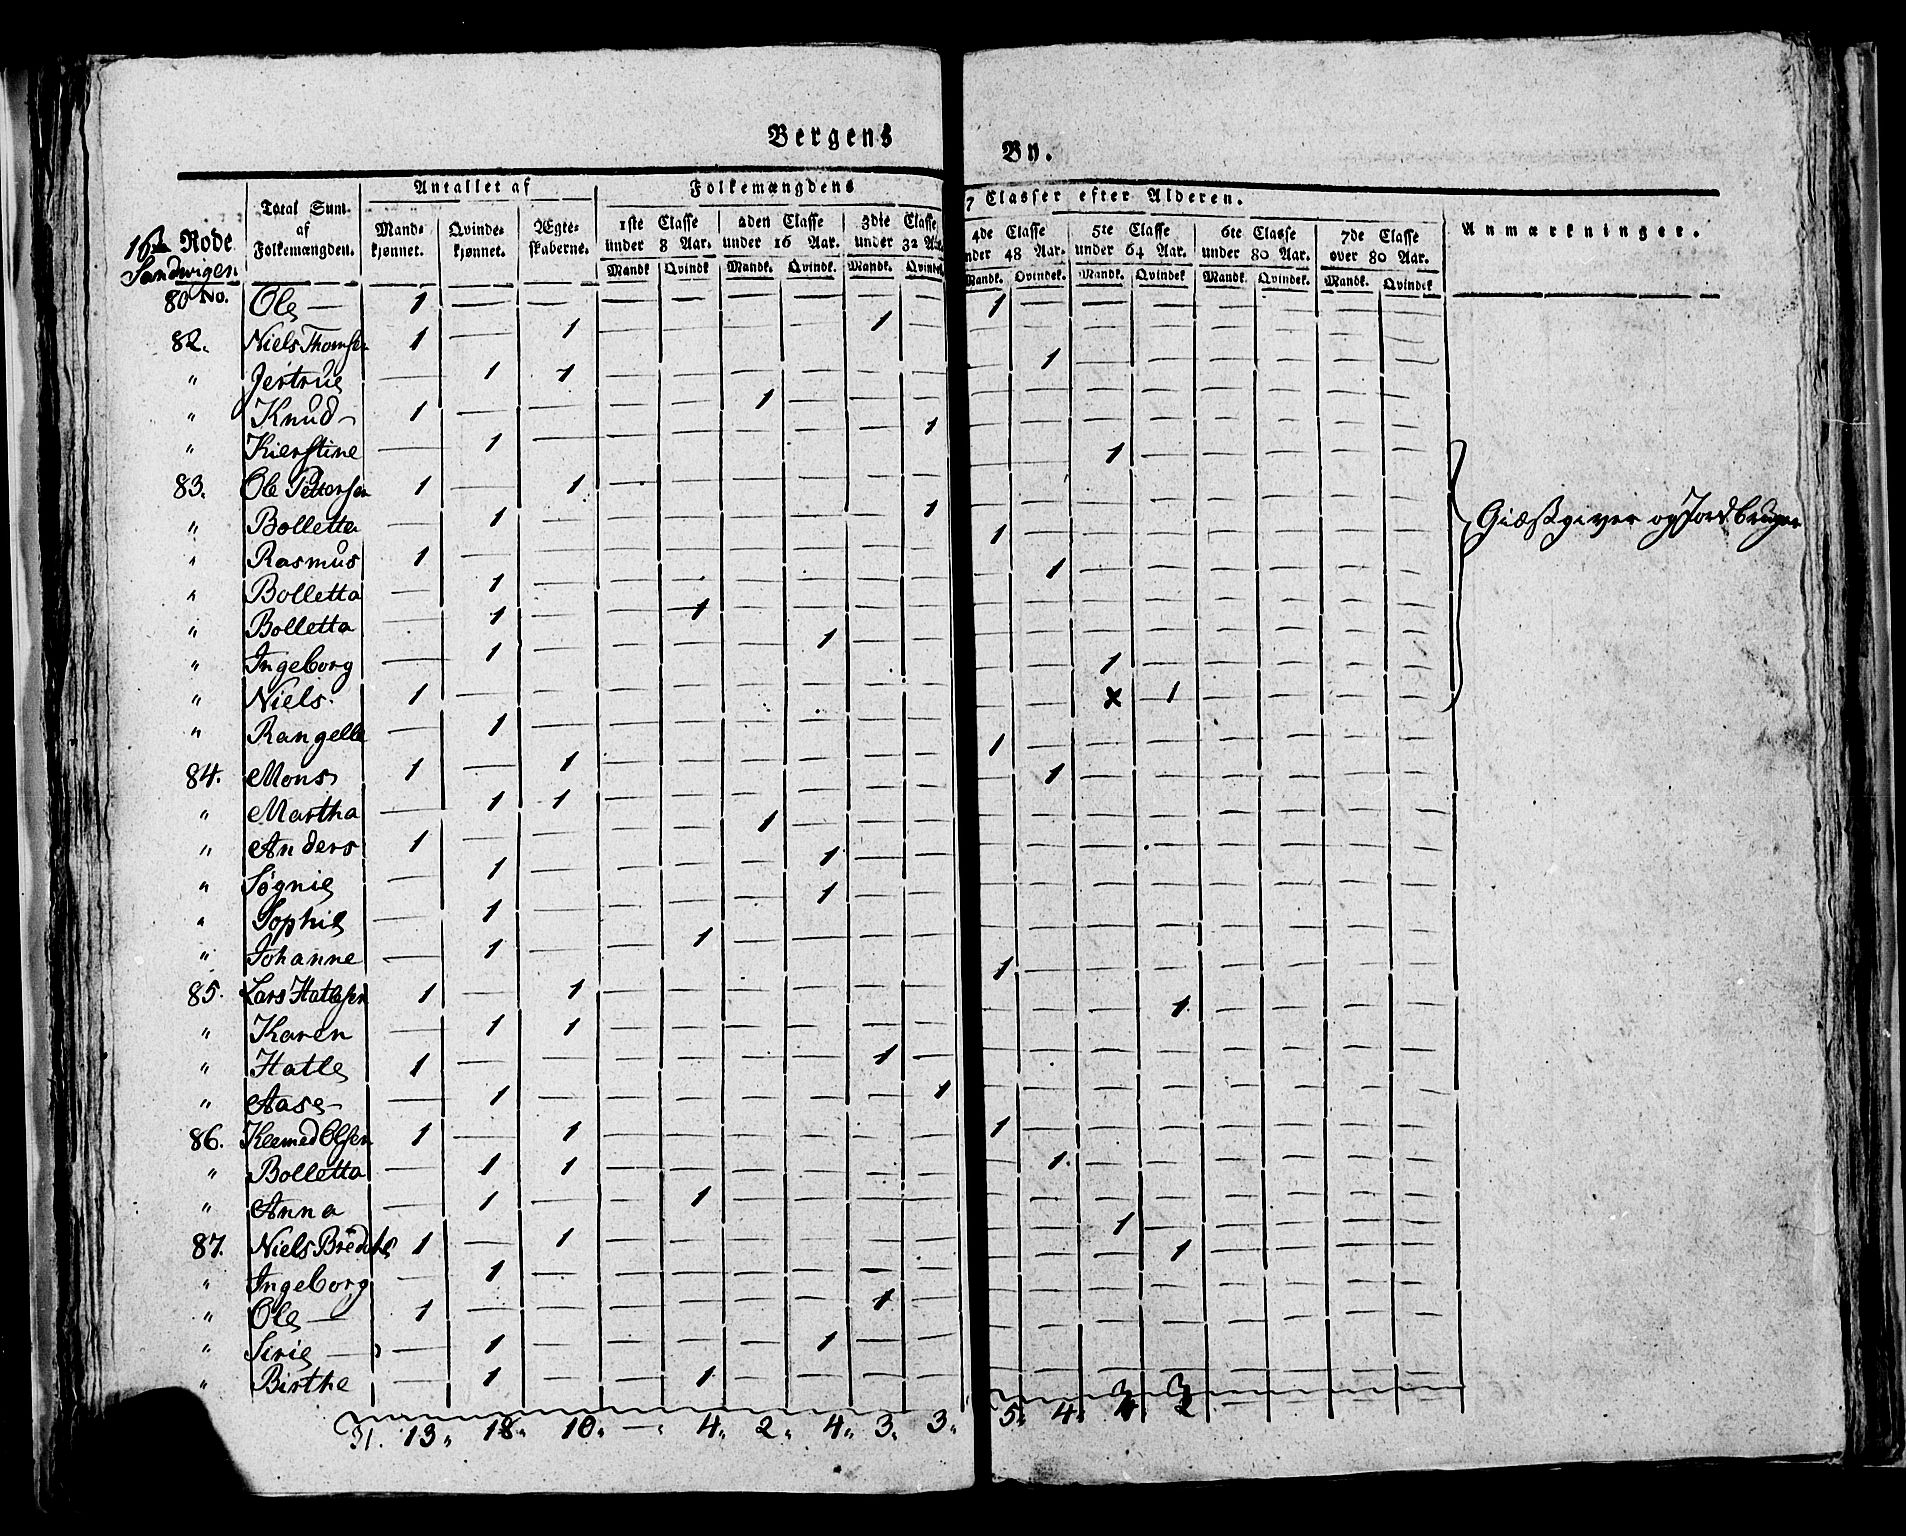 Bergens By.
Antallet af Folkemængdens 7 Classer efter Alderen.
Total Sum. 1ste Classe 2den Classe 3die Classe 4de Classe 5te Classe 6te Classe 7de Classe
16de Rode af Mand- Qvinde- Ægte- under 8 Aar. under 16 Aar. under 32 Aar. under 48 Aar. under 64 Aar. under 80 Aar. over 80 Aar. Anmærkninger.
Sandwigen Folkemængden. kjønnet. kjønnet. skaberne. Mandk Qvindk Mandk. Qvindk. Mandk. Qvindek Mandk. Qvindek. Mandk. Qvindek Mandk. Qvindek. Mandk. Qvindek
No.
80 Ole — 1 — — — — — — — — 1 — — — — — — —
82. Niels Thomsen 1 — 1 — — — — 1 — — — — — — — — —
" Jertrue — 1 1 — — — — — — — 1 — — — — — —
" Knud 1 — — — — 1 — — — — — — — — — — —
" Kierstine — 1 — — — — — — 1 — — — — — — — —
83. Ole Pettersen 1 — 1 — — — — — — — — 1 — — — — —
" Bolletta — 1 — — — — — — 1 — — — — — — — — Giæstgiver og Jordbruger
" Rasmus 1 — — — — — — — — 1 — — — — — — —
" Bolletta — 1 — — — — — — — — 1 — — — — — —
" Bolletta — 1 — — 1 — — — — — — — — — — — —
" Ingeborg — 1 — — — — 1 — — — — — — — — — —
" Niels 1 — — — — — — — — — — 1 — — — — —
" Rangelle — 1 — — — — — — — — — x 1 — — — —
84. Mons 1 — 1 — — — — — — 1 — — — — — — —
" Martha — 1 1 — — — — — — — 1 — — — — — —
" Anders 1 — — — — 1 — — — — — — — — — — —
" Søgnie — 1 — — — — 1 — — — — — — — — — —
" Sophie — 1 — — — — 1 — — — — — — — — — —
" Johanne — 1 — — 1 — — — — — — — — — — — —
85. Lars Hatlesen 1 — 1 — — — — — — 1 — — — — — — —
" Karen — 1 1 — — — — — — — — — 1 — — — —
" Hatle 1 — — — — — — 1 — — — — — — — — —
" Aase — 1 — — — — — — 1 — — — — — — — —
86. Olsen 1 — 1 — — — — — — 1 — — — — — — —
" Bolletta — 1 1 — — — — — — — 1 — — — — — —
" Anna — 1 — — 1 — — — — — — — — — — — —
87. Niels 1 — 1 — — — — — — — — 1 — — — — —
" Ingeborg — 1 — — — — — — — — — — 1 — — — —
" Ole — 1 — — — — — — 1 — — — — — — — — —
" Sirie — — 1 — — — — 1 — — — — — — — — — —
" Birthe — 1 — — 1 — — — — — — — — — — — —
31. 13. 18. 10. — 4. 2. 4. 3. 3. 5. 4. 3 3